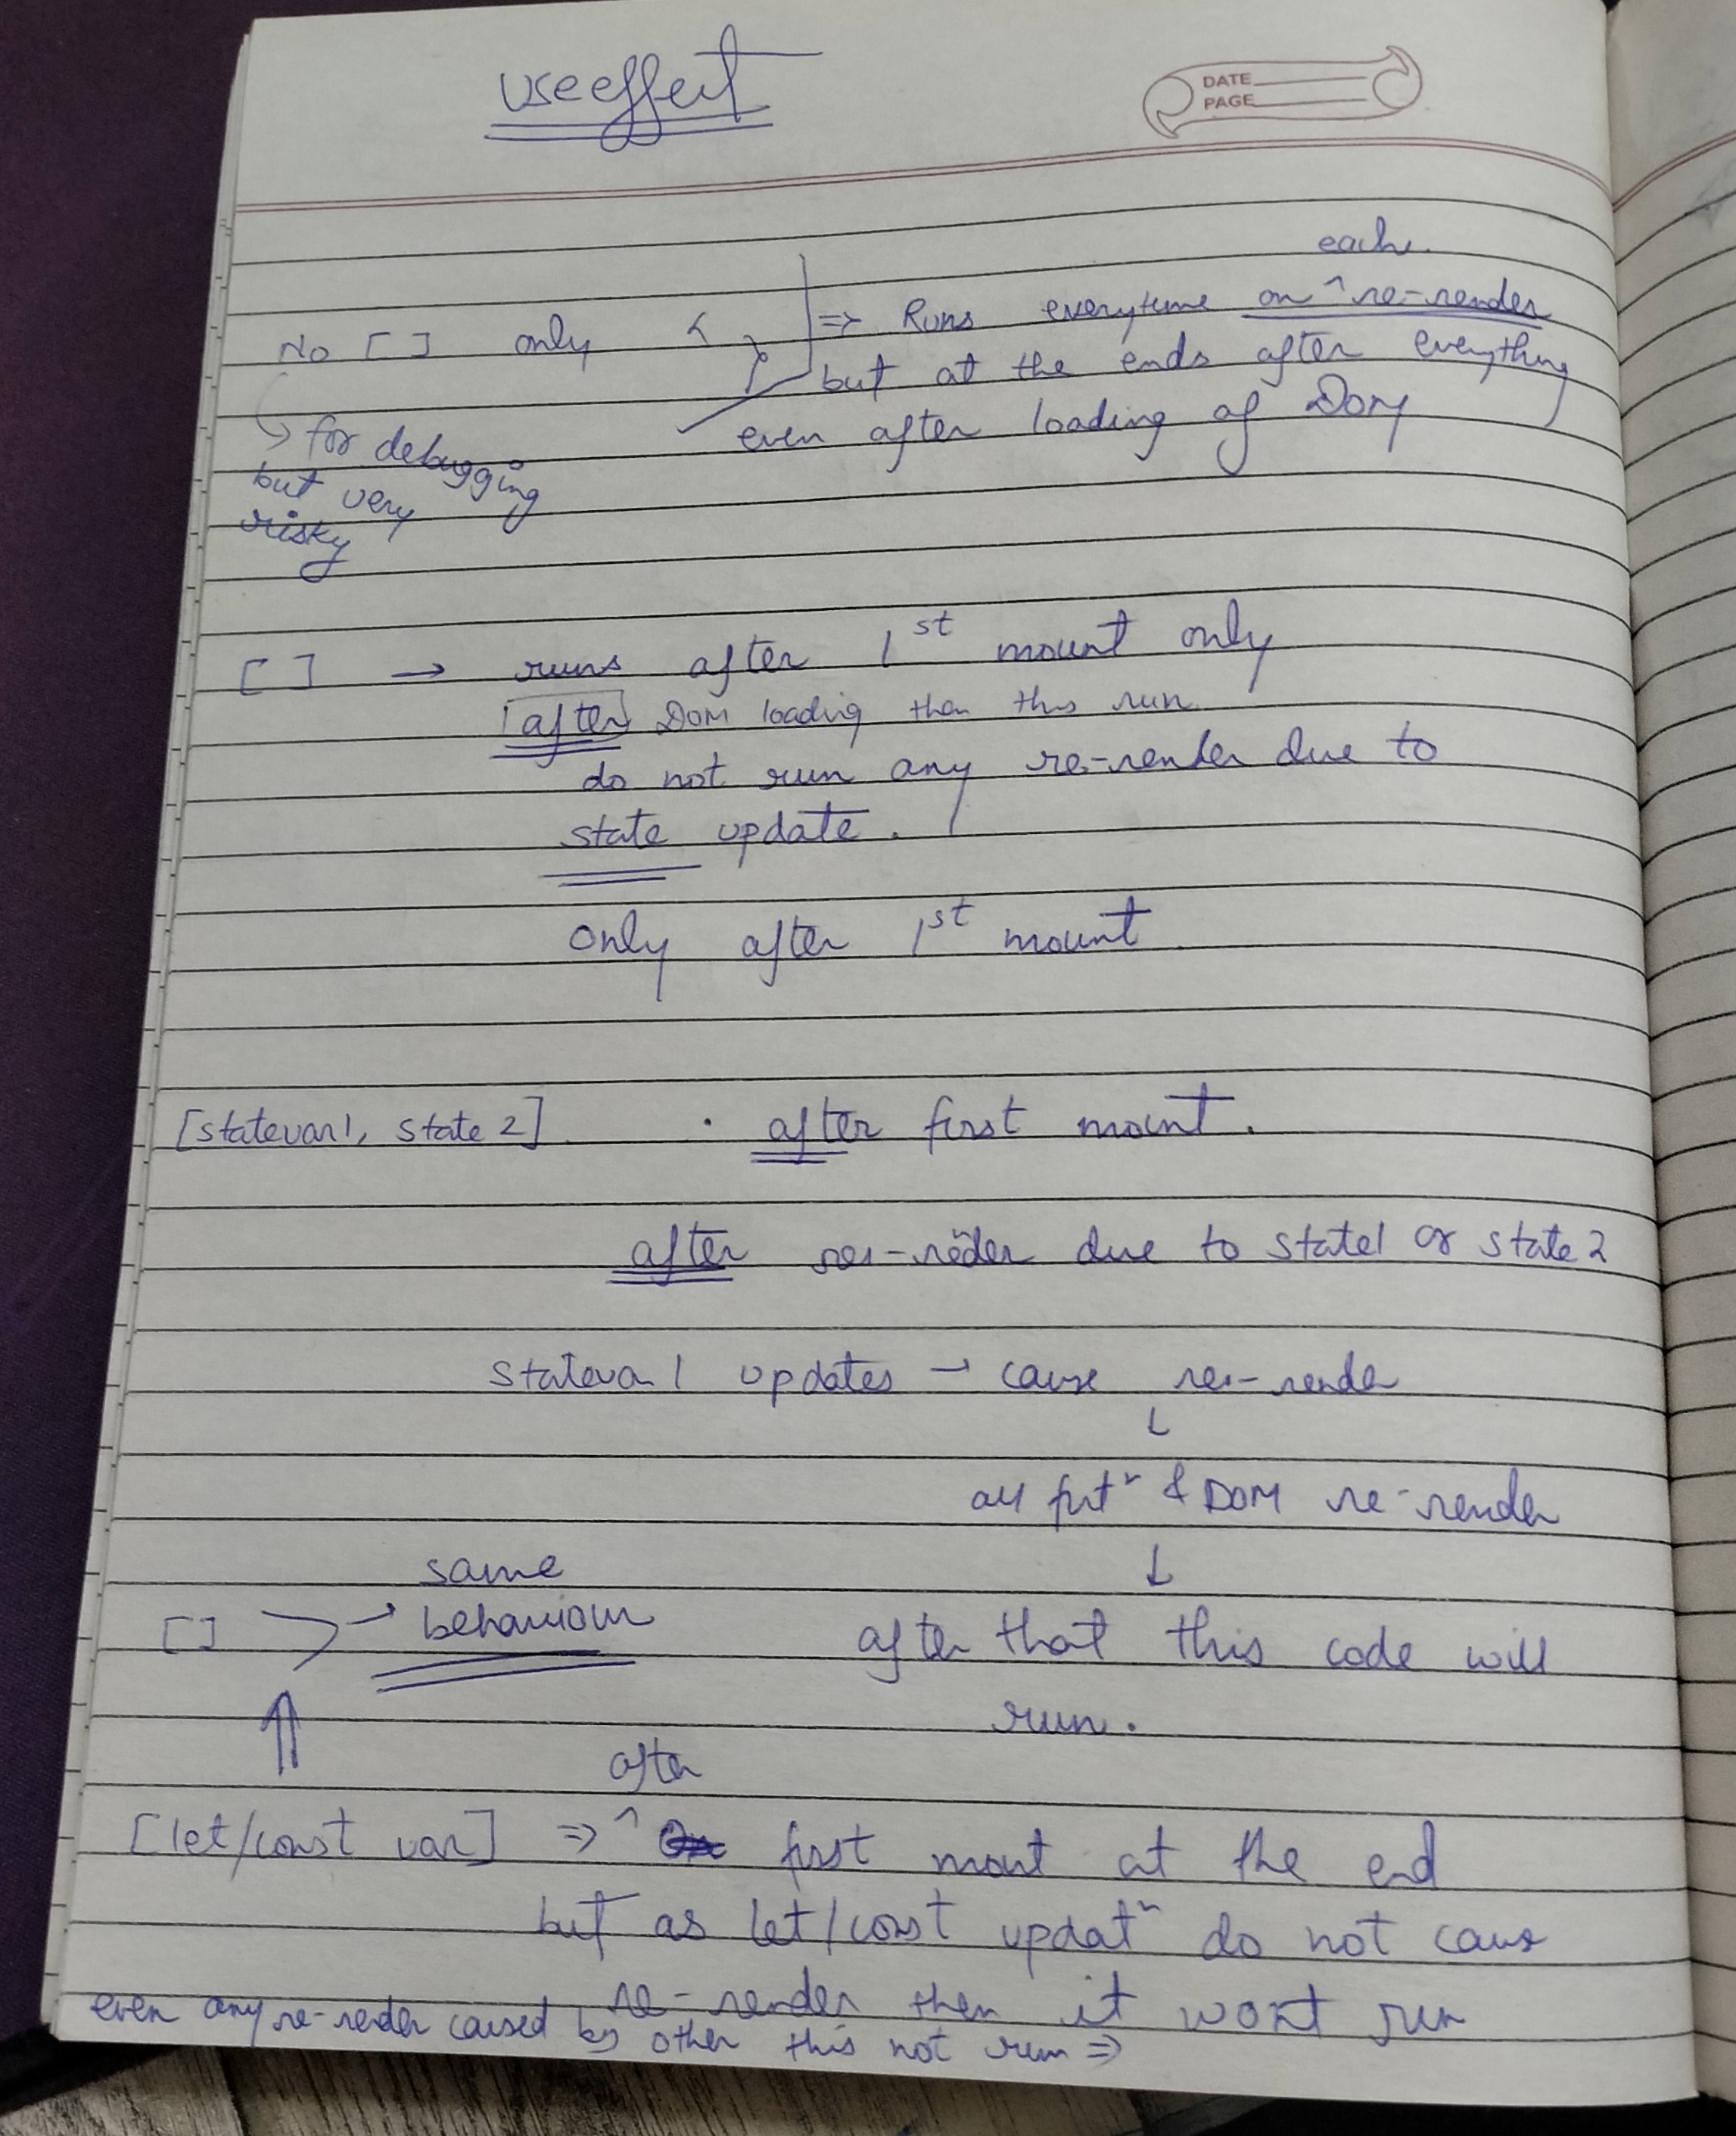 useeffect
DATE
PAGE
each
No [ ] only { } => Runs everytime on ^ re-render
but at the ends after everything
even after loading of DOM
↳ for debugging
but very
risky
[ ] → runs after 1st mount only
after DOM loading then this run
do not run any re-render due to
state update.
only after 1st mount
[statevar1, state 2] . after first mount.
after re-render due to state1 or state 2
statevar 1 updates → cause re-render
↓
all & DOM re-render
↓
same
[ ] → behaviour after that this code will
run.
⇑
after
[let/const var] => ^ first mount at the end
but as let/const updatn do not cause
re-render then it wont run
even any re-render caused by other this not run =>